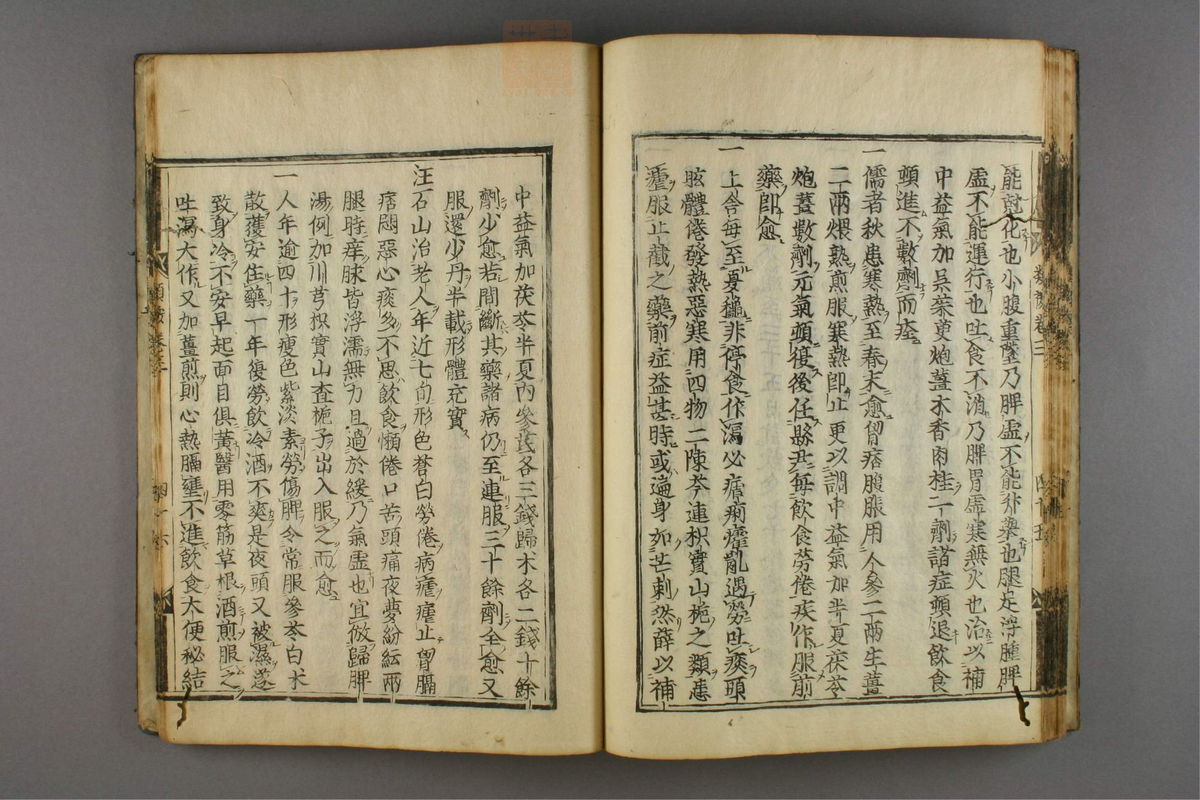 能尅化也小腹重墜乃脾虛不能升擧也腿足浮腫脾
虛不能運行也吐食不消乃脾胃虛寒無火也治以補
中益氣加吳茱萸炮薑木香肉桂二劑諸症頓退飲食
頓進不數劑而痊
一儒者秋患寒熱至春末愈胷痞腹脹用人參二兩生薑
二兩煨熱煎服寒熱卽止更以調中益氣加半夏茯苓
炮薑數劑元氣頓復後任縣尹每飲食勞倦疾作服前
藥卽愈
一上舍每至夏穐非停食作瀉必瘧痢癨亂遇勞吐痰頭
眩體倦發熱惡寒用四物二陳芩連枳實山梔之類患
瘧服止截之藥前症益甚時或遍身如芒刺然薛以補
中益氣加茯苓半夏內參芪各三錢歸朮各二錢十餘
劑少愈若間斷其藥諸病仍至連服三十餘劑全愈又
服還少丹半載形體充實
汪石山治老人年近七旬形色蒼白勞倦病瘧瘧止胷膈
痞悶惡心痰多不思飲食懶倦口苦頭痛夜夢紛紜兩
腿時痒脉皆浮濡無力且過於緩乃氣虛也宜倣歸脾
湯例加川芎枳實山査梔子出入服之而愈
一人年逾四十形瘦色紫淡素勞傷脾令常服參苓白朮
散獲安住藥一年復勞飲冷酒不爽是夜頭又被濕遂
致身冷不安早起面目俱黃醫用零筋草根酒煎服之
吐瀉大作又加薑煎則心熱膈壅不進飲食大便秘結